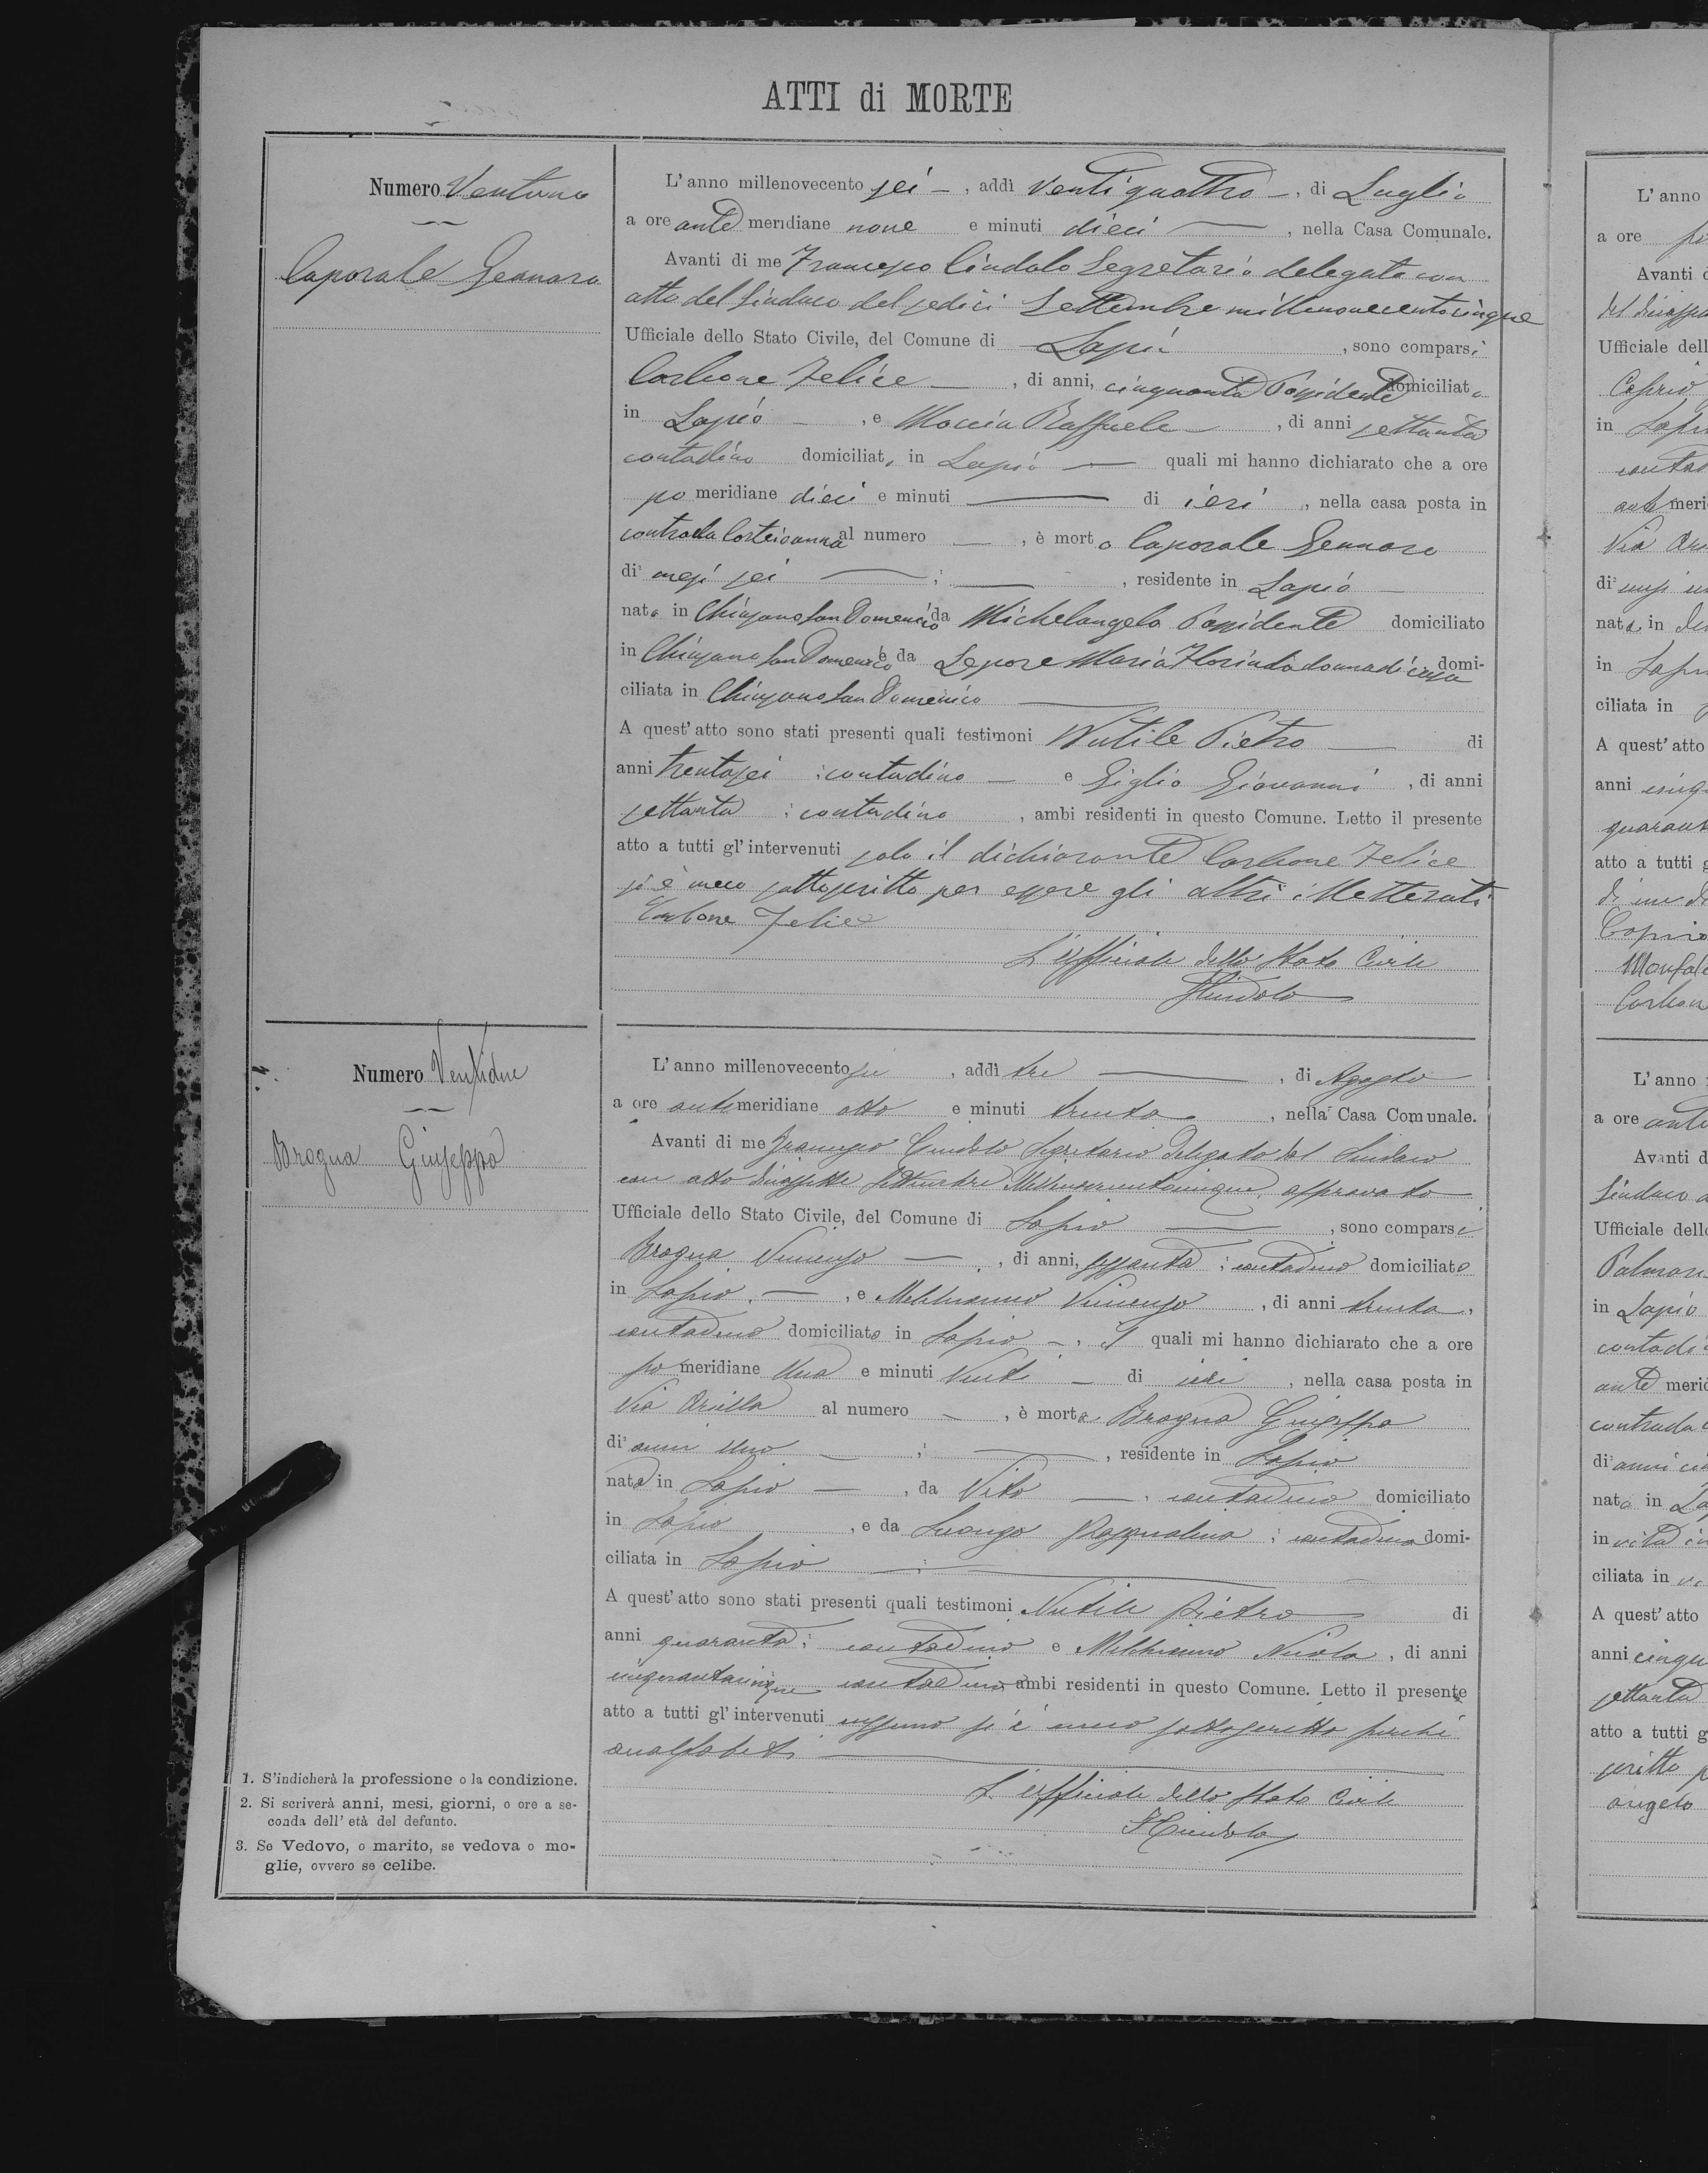 ATTI di MORTE
Numero Ventuno
Caporale Gennaro
L'anno millenovecento sei, addì ventiquattro, di Luglio
a ore ante meridiane nove e minuti dieci, nella Casa Comunale.
Avanti di me Francesco Cindolo Segretario delegato con
atto del Sindaco del sedici Settembre millenovecentocinque
Ufficiale dello Stato Civile, del Comune di Lapio, sono comparsi
Carbone Felice, di anni, cinquanta Possidente domiciliato
in Lapio, e Moccia Raffaele, di anni settanta
contadino domiciliato in Lapio quali mi hanno dichiarato che a ore
po meridiane dieci e minuti di ieri, nella casa posta in
contrada al numero, è morto Caporale Gennaro
di² mesi sei, residente in Lapio
nato in Chiusano San Domenico da Michelangelo Possidente domiciliato
in Chiusano San Domenico e da Lepore Maria Florinda donna di casa domi-
ciliata in Chiusano San Domenico
A quest'atto sono stati presenti quali testimoni Nutile Pietro di
anni trentasei contadino e Giglio Giovanni, di anni
settanta contadino, ambi residenti in questo Comune. Letto il presente
atto a tutti gl'intervenuti solo il dichiarante Carbone Felice
si è meco sottoscritto per essere gli altri illetterati
Carbone Felice
L'ufficiale dello Stato Civile
FCindolo
Numero Ventidue
Brogna Giuseppa
L'anno millenovecento sei, addì tre, di Agosto
a ore antimeridiane otto e minuti trenta, nella Casa Comunale.
Avanti di me Francesco Cindolo Segretario Delegato dal Sindaco
con atto diciassette Settembre Millenovecentocinque, approvato
Ufficiale dello Stato Civile, del Comune di Lapio, sono comparsi
Brogna Vincenzo, di anni, sessanta; contadino domiciliato
in Lapio, e Vincenzo, di anni trenta,
contadino domiciliato in Lapio, i quali mi hanno dichiarato che a ore
po meridiane Una e minuti Venti di ieri, nella casa posta in
Via Arvilla al numero, è morta Brogna Giuseppa
di² anni Uno, residente in Lapio
nata in Lapio, da Vito contadino domiciliato
in Lapio, e da Luongo Pasqualina; contadina domi-
ciliata in Lapio
A quest'atto sono stati presenti quali testimoni Nutile Pietro di
anni quaranta; contadino e Nicola, di anni
cinquantacinque contadino ambi residenti in questo Comune. Letto il presente
atto a tutti gl'intervenuti nessuno si è meco sottoscritto perché
analfabeti
L'ufficiale dello Stato Civile
FCindolo
1. S'indicherà la professione o la condizione.
2. Si scriverà anni, mesi, giorni, o ore a se-
conda dell'età del defunto.
3. Se Vedovo, o marito, se vedova o mo-
glie, ovvero se celibe.
L'anno
a ore
Avanti d
Ufficiale dell
in Lapio
ante meri
Via
di²
nata in
in Lapio
ciliata in
A quest'atto
anni
atto a tutti g
L'anno
a ore
Avanti d
Sindaco
Ufficiale dello
in Lapio
ante merid
contrada
di² anni
nato in
in
ciliata in
A quest'atto
anni
settanta
atto a tutti g